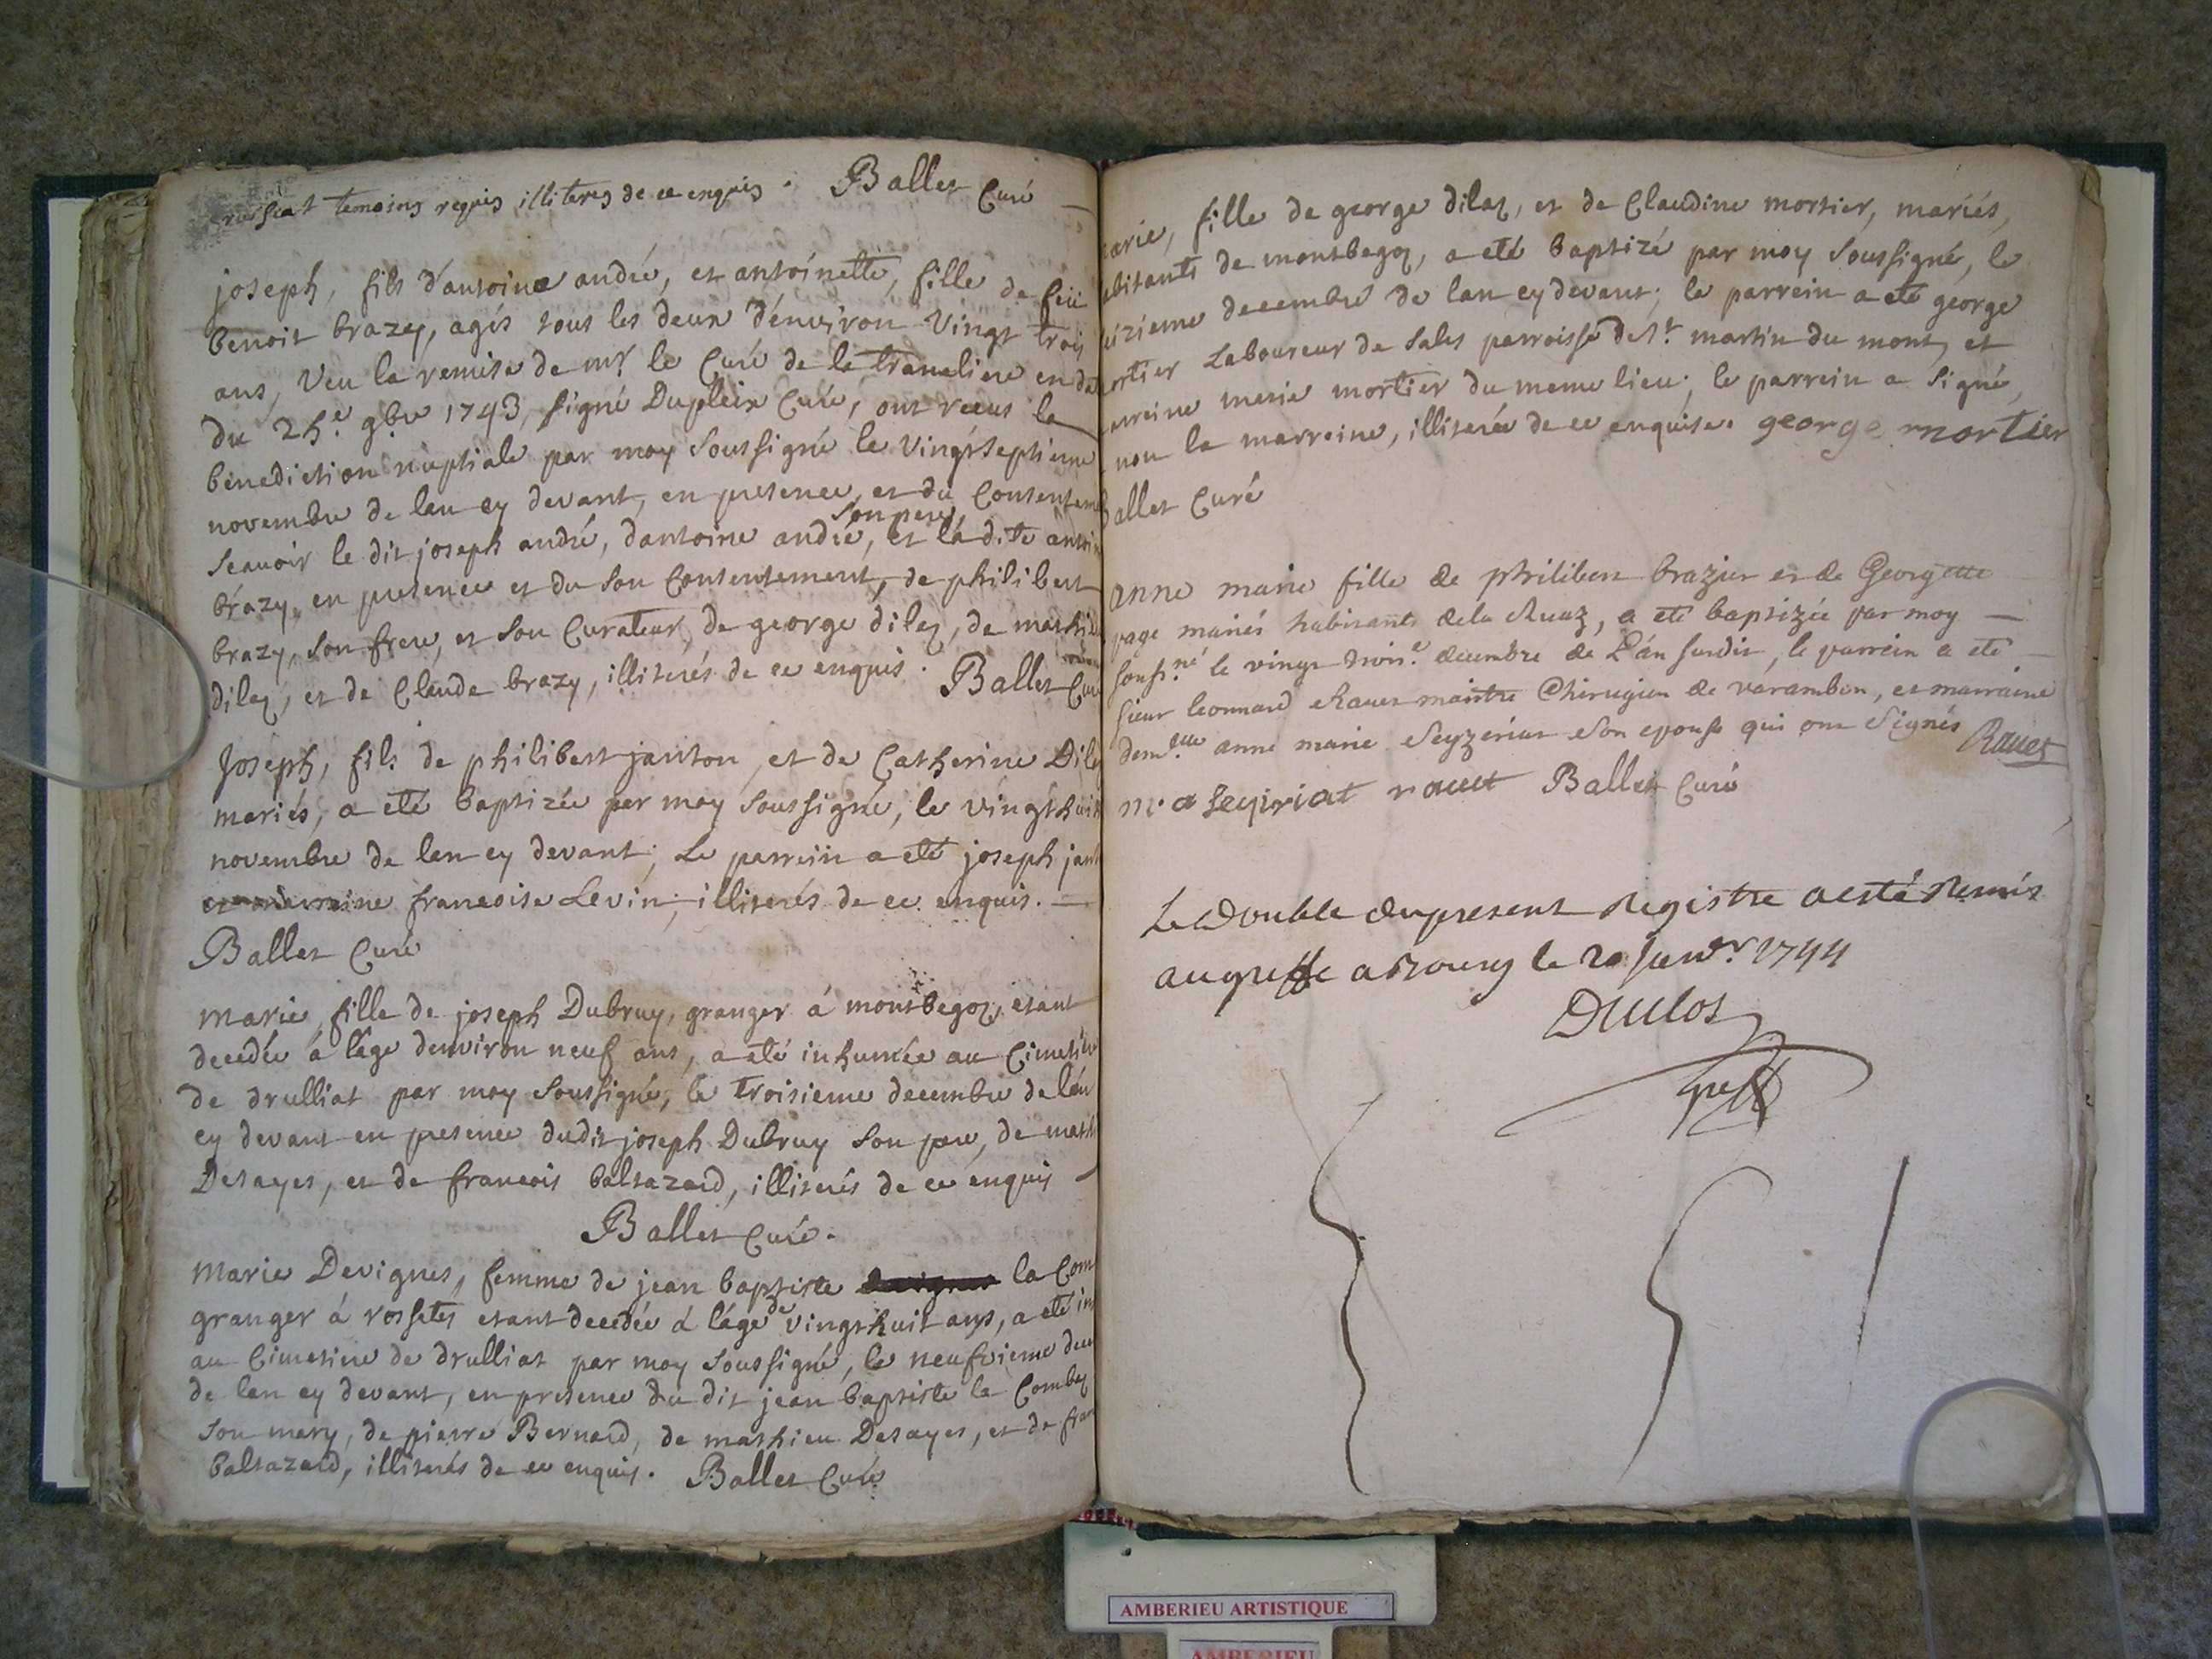 temoins requis illiteres de ce enquis . Ballet Curé
joseph, fils d'antoine andré, et antoinette, fille de feü
benoit brazy, agés tous les deux d'énviron vingt trois
ans, veu la remise de mr. le Curé de la tranclière en da
du 25.e 9.bre 1743, signé Dupleix Curé, ont receus la
bénédiction nuptiale par moy soussigné le vingtseptieme
novembre de lan cy devant, en presence, et du Consentem
scavoir le dit joseph andré, dantoine andré, son pere, et la dite antoin
brazy, en presence et du son Consentement, de philibert
brazy, son frere, et son Curateur, de george dilaz, de mathi
dilaz, et de Claude brazy, illiterés de ce enquis . Ballet Curé
Joseph, fils de philibert janton, et de Catherine Dila
mariés, a eté baptizée par moy soussigné, le vingthuit
novembre de lan cy devant, Le parrein a eté joseph jant
et marreine francoise Levin, illiterés de ce enquis. —
Ballet Curé
Marie, fille de joseph Dubruy, granger á montbegoz, etant
decedée a lâge denviron neuf ans, a eté inhumée au Cimetie
de drulliat par moy soussigné, le troisieme decembre de lan
cy devant en presence dudit joseph Dubruy son pere, de math
Desayes, et de francois baltazard, illiterés de ce enquis
Ballet Curé.
Marie Devignes, femme de jean baptiste la Com
granger á rossetes etant decedée á l'âge de vingthuit ans, a eté in
au Cimetiere de drulliat par moy soussigné, le neufvieme dec
de lan cy devant, en presence du dit jean baptiste la Combaz
son mary, de pierre Bernard, de mathieu Desayes, et de fran
baltazard, illiterés de ce enquis. Ballet Curé
arie, fille de george dilaz, et de Claudine mortier, mariés,
abitants de montbegoz, a eté baptizé par moy soussigné, le
izieme decembre de lan cy devant; le parrein a eté george
ortier Laboureur de Sales parroisse de st. martin du mont, et
arreine marie mortier du meme lieu; le parrein a signé,
non la marreine, illiterée de ce enquise. george mortier
Ballet Curé
anne marie fille de philibert brazier et de Georgette
page mariés habitants de la Ruaz, a eté baptizée par moy —
souss.né le vingt trois.e decembre de L'an susdit, le parrein a eté
sieur leonnard Ravet maistre Chirugien de varambon, et marraine
dem.lle anne marie Seyzeriat son epouse qui ont signés Ravet
m a seyiriat ravet Ballet Curé
Le Double dupresent Registre a esté Remis
au greffe a Bourg le 20 janv.er 1744
Duclos
greff
AMBERIEU ARTISTIQUE
AMBERIEU